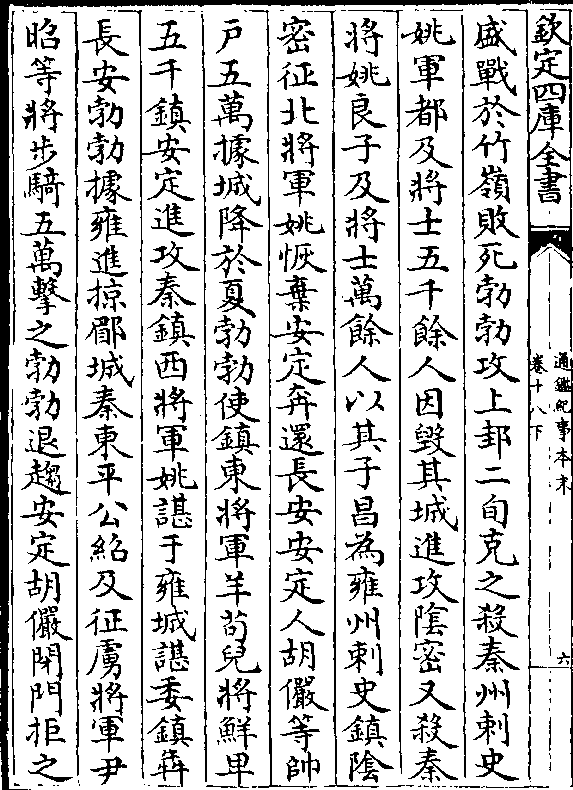 欽定四庫全書
通鑑紀事本末
卷十八下
六
盛戰於竹嶺敗死勃勃攻上邽二旬克之殺秦州刺史
姚軍都及將士五千餘人因毀其城進攻陰密又殺秦
將姚良子及將士萬餘人以其子昌為雍州刺史鎮陰
密征北將軍姚恢棄安定奔還長安安定人胡儼等帥
戶五萬據城降於夏勃勃使鎮東將軍羊苟兒將鮮卑
五千鎮安定進攻秦鎮西將軍姚諶于雍城諶委鎮犇
長安勃勃據雍進掠郿城秦東平公紹及征虜將軍尹
昭等將步騎五萬擊之勃勃退趨安定胡儼閉門拒之